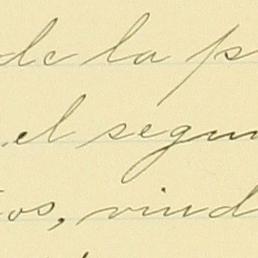 de la p
el segun
os, viud